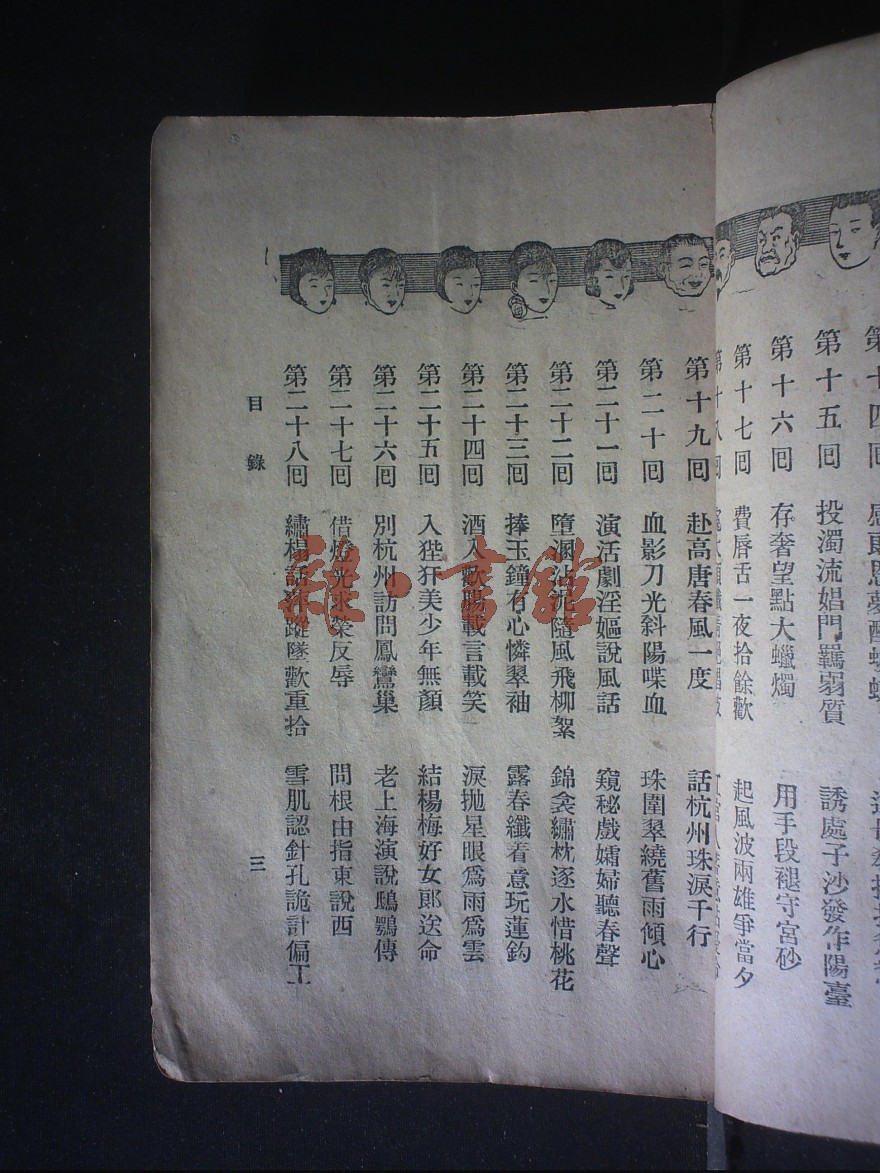 第十四囘
第十五囘 投濁流娼門羈弱質 誘處子沙發作陽臺
第十六囘 存奢望點大蠟燭 用手段褪守宮砂
第十七囘 費唇舌一夜拾餘歡 起風波兩雄爭當夕
第十八囘
第十九囘 赴高唐春風一度 話杭州珠淚千行
第二十囘 血影刀光斜陽喋血 珠圍翠繞舊雨傾心
第二十一囘 演活劇淫嫗說風話 窺秘戲孀婦聽春聲
第二十二囘 墮溷沾泥隨風飛柳絮 錦衾繡枕逐水惜桃花
第二十三囘 捧玉鐘有心憐翠袖 露春纖着意玩蓮鈎
第二十四囘 酒入歡腸載言載笑 淚拋星眼爲雨爲雲
第二十五囘 入狴犴美少年無顏 結楊梅好女郎送命
第二十六囘 別杭州訪問鳳鸞巢 老上海演說鴟鶚傳
第二十七囘 借燈光求榮反辱 問根由指東說西
第二十八囘 繡楊話 蹤墜歡重拾 雪肌認針孔詭計偏工
目錄
三
雜·書館